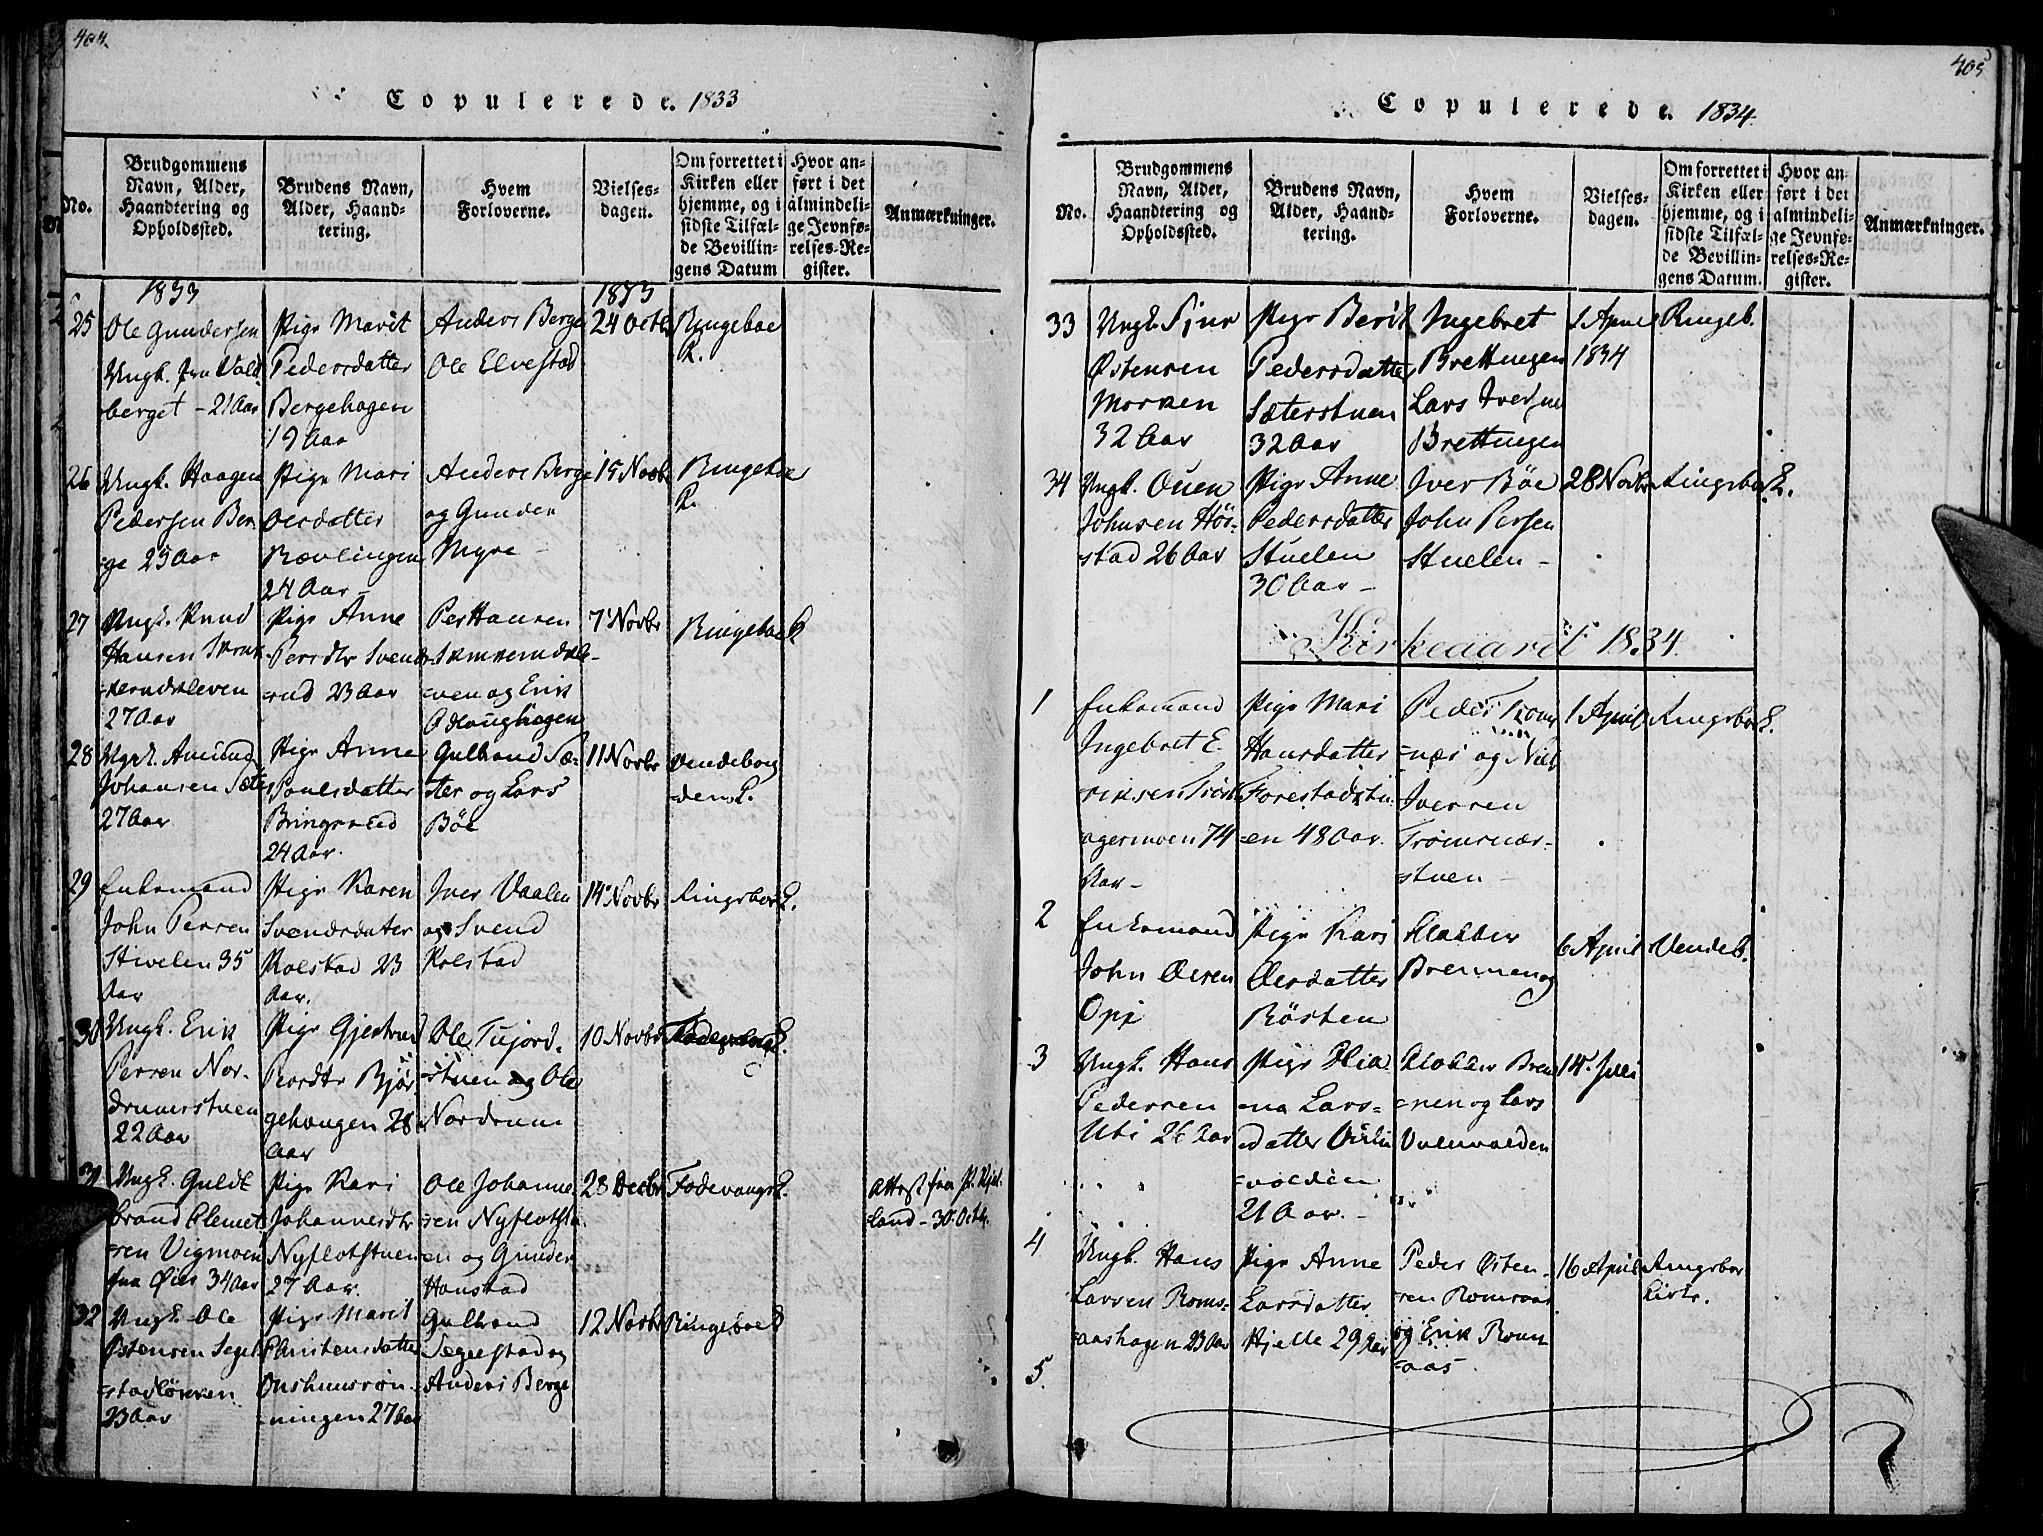 404.
Copulerede. 1833
No.
Brudgommens Navn, Alder, Haandtering og Opholdssted.
Brudens Navn, Alder, Haandtering.
Hvem Forloverne.
Vielsesdagen.
Om forrettet i Kirken eller hjemme, og i sidste Tilfælde Bevillingens Datum
Hvor anført i det almindelige Jevnførelses-Register.
Anmærkninger.
1833
1833
25
Ole Gundersen
Ungk. fra Vold
berget - 21 Aar
Pige Marit
Pedersdatter
Bergehagen
19 Aar
Anders Berge
Ole Elvestad
24 Octb
Ringeboe
K.
26
Ungk. Haagen
Pedersen Ber
ge 25 Aar
Pige Mari
Olesdatter
Rævlingen
24 Aar -
Anders Berge
og Gunder
Myre -
15 Novbr
Ringeboe
K.
27
Ungk. Knud
Hansen Skruk
kerudkleven
27 Aar
Pige Anne
Persdtr Svends
rud 23 Aar
Per Hansen
Skrukerudkle-
ven og Erik
Odlaughagen
7 Novbr
Ringeboe K
28
Ungk. Amund
Johansen Sæter
27 Aar
Pige Anne
Poulsdatter
Bringsrud
24 Aar.
Gulbrand Sæ-
ter og Lars
Böe
11 Novbr
Vendebog
dens K.
29
Enkemand
John Persen
Stuelen 35
Aar
Pige Karen
Svendsdatter
Kolstad 23
Aar.
Iver Vaalen
og Svend
Kolstad
14 Novbr
Ringeboe K.
30
Ungk. Erik
Persen Nor-
drumstuen
22 Aar
Pige Gjertrud
Persdtr Bjør
gehaugen 28
Aar
Ole Tujord-
stuen og Ole
Nordrum
10 Novbr
31
Ungk. Guldt
brand Clemet
sen Vigmoen
fra Øier 34 Aar
Pige Kari
Johannesdtr
Nyflotstuen
27 Aar.
Ole Johanne
sen Nyflotstu
en og Gunder
Hanstad
28 Decbr
Fodevangs K.
Attest fra
land - 30 Octb.
32
Ungk. Ole
Østensen Segel
stadløkken
23 Aar
Pige Marit
Christensdatter
Onshuusrøn-
ningen 27 Aar
Gulbrand
Segelstad og
Anders Berge
12 Novbr
Ringeboe K
405
Copulerede. 1834.
No.
Brudgommens Navn, Alder, Haandtering og Opholdssted.
Brudens Navn, Alder, Haandtering.
Hvem Forloverne.
Vielsesdagen.
Om forrettet i Kirken eller hjemme, og i sidste Tilfælde Bevillingens Datum.
Hvor anført i det almindelige Jevnførelses-Register.
Anmærkninger.
33
Ungk. Siver
Østensen
Morken
32 Aar
Pige Berit
Pedersdatter
Sæterstuen
32 Aar
Ingebret
Brettingen
Lars Iversen
Brettingen
1 April
1834
Ringeb.
34
Ungk. Ouen
Johnsen Høs-
stad 26 Aar
Pige Anne
Pedersdatter
Stuelen
30 Aar -
Iver Böe
John Persen
Stuelen -
28 Novbr
Ringeboe K.
Kirkeaaret 1834.
1
Enkemand
Ingebret E-
riksen Trøst
agermoen 74
Aar -
Pige Mari
Hansdatter
Forestadstu
en 48 Aar.
Peder Troms
næs og Niels
Iversen
Tromsnæs-
stuen -
1 April
Ringeboe K.
2
Enkemand
John Olsen
Opj
Pige Kari
Olesdatter
Røsten
Klabber
Brennen og
6 April
Vendeb.
3
Ungk. Hans
Pedersen
Ubi 26 Aar
Pige Elia
na Lars-
datter
volden
21 Aar. -
Klabber Bren
nen og Lars
14. Juli
4
Ungk. Hans
Larsen Roms-
aashagen 23 Aar
Pige Anne
Larsdatter
Hjelle 29 Aar
Peder Østen-
sen Romsaas
og Erik Roms
aas.
16 April
Ringeboe
Kirke.
5.